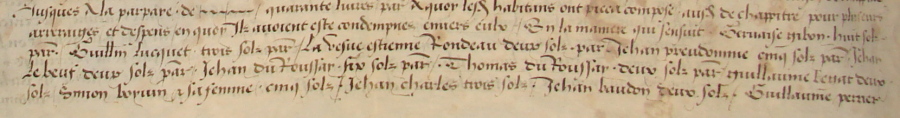 Jusques A la parpaie de quarante livres par A quoy lesd habitans ont pieca compose ausd de chappitre pour plusieurs
arrerages et despens en quoy Ilz avoient este condempnes envers eulx En la maniere qui sensuit Gervaise gibon huit solz
par Guillm lucquet trois solz par La vesve estienne Rondeau deux solz par Jehan preudomme cinq solz par Jehan
le beuf deux solz par Jehan du Roussay six solz par Thomas du Roussay deux solz par guillaume deux
solz Simon boyvin & sa femme cinq solz Jehan charles trois solz Jehan baudon deux solz Guillaume perrier